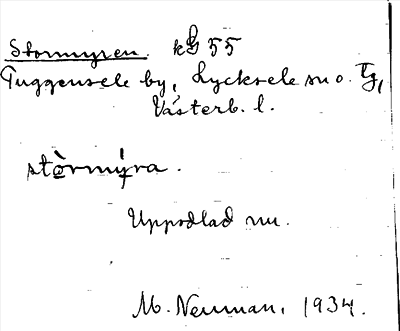 Stormyren. kB 55
Tuggensele by, Lycksele sn o. Tg,
Västerb. l.
stòrmýra.
Uppodlad nu.
M. Neuman, 1934.